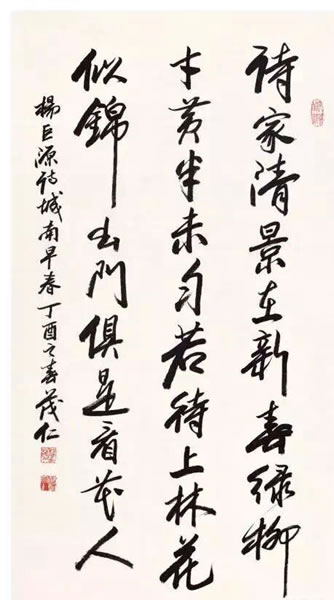 诗家清景在新春绿柳
才黄半未匀若待上林花
似錦出门俱是看花人
楊巨源诗城南早春丁酉之春茂仁